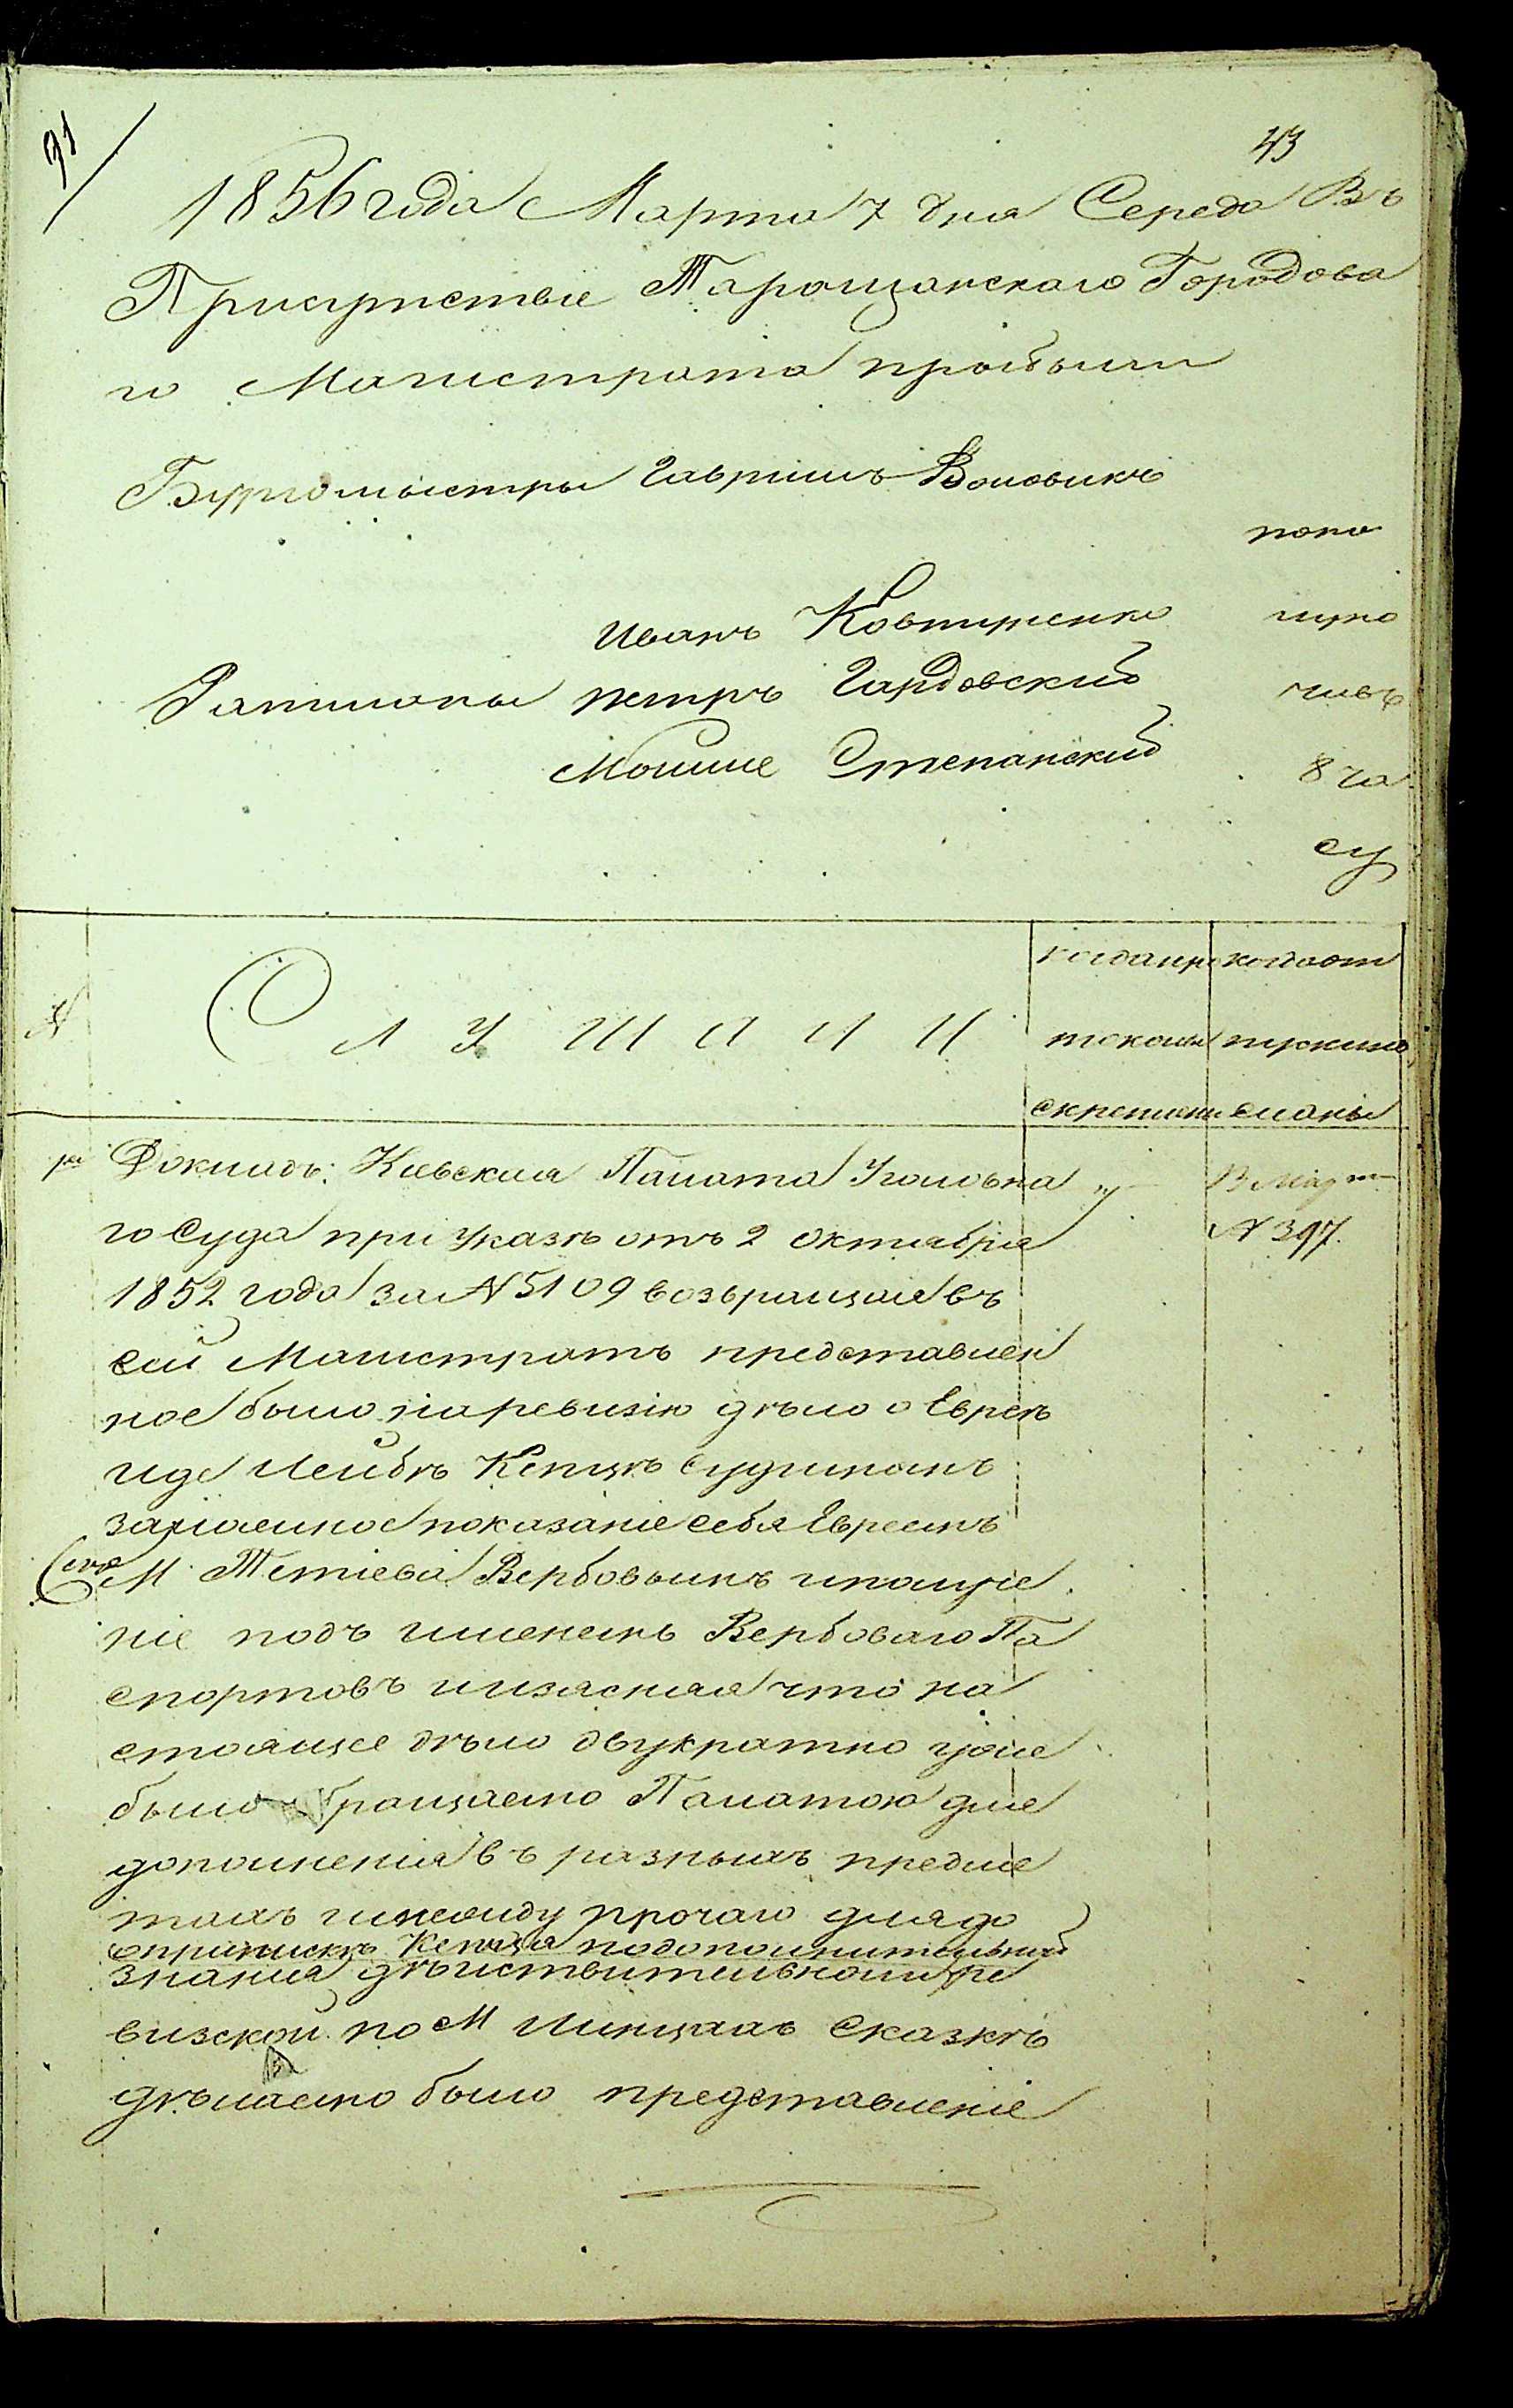 91
43
1856 года Марта 7 дня Середа Въ
Присутствіе Таращанскаго Городова
го Магистрата прибыли
Бургомыстры Гавриилъ Воловикъ
попо
Иванъ Ковтуненко
луно
Ратманы петръ Гардовский
чивъ
Мошше Степанский
8 ча
су
N
СЛУШАЛИ
когда про
когда от
токолы
пускно
скреплены
сланы
1й Докладъ: Киевская Палата Уголовна
го Суда при Указѣ отъ 2 октября
1852 года за N 5109 возвращая въ
сей Магистратъ представлен
ное было на ревизію дѣло о Евреѣ
Иде Лейбѣ Кепцѣ судимомъ
за ложное показаніе себя Евреемъ
М. Тетіева Вербовымъ и получе
ніе подъ имененъ Вербоваго Па
спортовъ изъясняя что на
стоящее дѣло двукратно уже
было обращаемо Палатою для
дополненія въ разныхъ предме
тахъ и между прочаго для до
о припискѣ Кепца по дополнительной
знания дѣйствительно ли ре
визской по М Линцахъ Сказкѣ
дѣлаемо было представленіе
В Март
N 397.